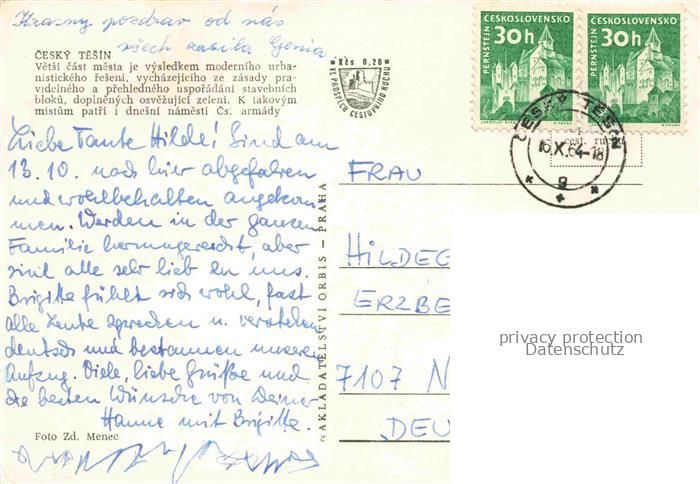 Krasny pozdrav od nás
všech zasila Genia
ČESKÝ TĚŠÍN
Větší část města je výsledkem moderního urba-
nistického řešení, vycházejícího ze zásady pra-
videlného a přehledného uspořádání stavebních
bloků, doplněných osvěžující zelení. K takovým
místům patří i dnešní náměstí Čs. armády
Kčs 0,20
VE PROSPĚCH CESTOVNÍHO RUCHU
ČESKOSLOVENSKO
PERNŠTEJN
30h
ČESKOSLOVENSKO
PERNŠTEJN
30h
ČESKÝ TĚŠÍN
16.X.64-18
g
Liebe Tante Hilde! Sind am
13.10. nach hier abgefahren
und wohlbehalten angekom-
men. Werden in der ganzen
Familie herumgereicht, aber
sind alle sehr lieb zu uns.
Brigitte fühlt sich wohl, fast
alle Leute sprechen u. verstehen
deutsch und bestaunen unseren
Aufzug. Viele, liebe Grüße und
die besten Wünsche von Deiner
Hanne mit Brigitte.
Foto Zd. Menec
NAKLADATELSTVÍ ORBIS – PRAHA
FRAU
HILDEG
ERZBE
7107 N
DEU
privacy protection
Datenschutz